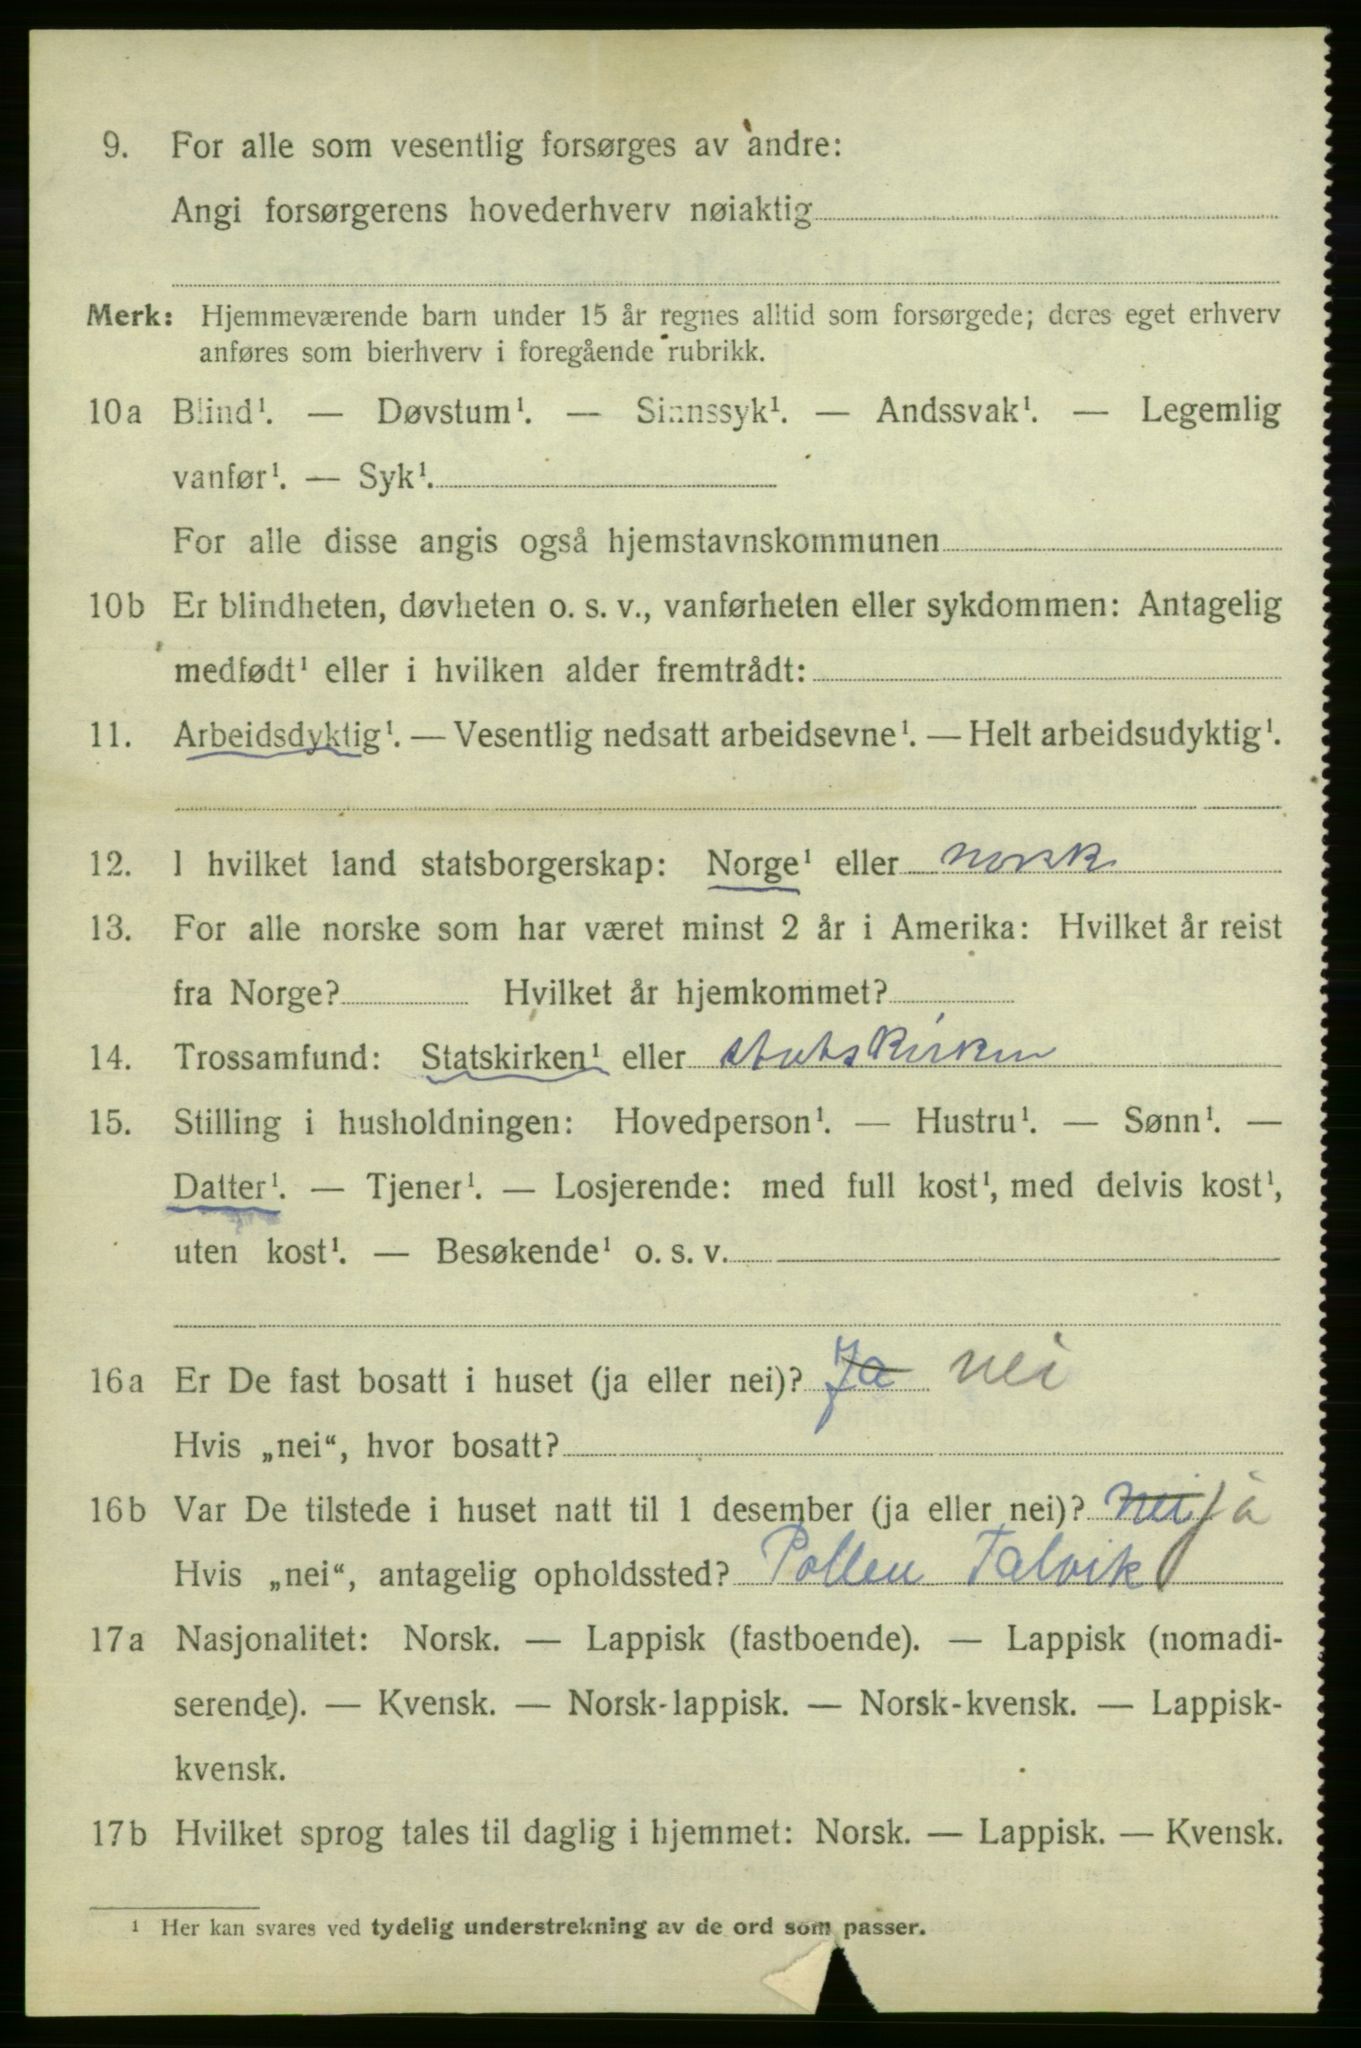 9. For alle som vesentlig forsørges av andre:
Angi forsørgerens hovederhverv nøiaktig
Merk: Hjemmeværende barn under 15 år regnes alltid som forsørgede; deres eget erhverv
anføres som bierhverv i foregående rubrikk.
10a Blind¹. — Døvstum¹. — Sinnssyk¹. — Andssvak¹. — Legemlig
vanfør¹. — Syk¹.
For alle disse angis også hjemstavnskommunen
10b Er blindheten, døvheten o. s. v., vanførheten eller sykdommen: Antagelig
medfødt¹ eller i hvilken alder fremtrådt:
11. Arbeidsdyktig¹. — Vesentlig nedsatt arbeidsevne¹. — Helt arbeidsudyktig¹.
12. I hvilket land statsborgerskap: Norge¹ eller norsk
13. For alle norske som har været minst 2 år i Amerika: Hvilket år reist
fra Norge? Hvilket år hjemkommet?
14. Trossamfund: Statskirken¹ eller statskirken
15. Stilling i husholdningen: Hovedperson¹. — Hustru¹. — Sønn¹. —
Datter¹. — Tjener¹. — Losjerende: med full kost¹, med delvis kost¹,
uten kost¹. — Besøkende¹ o. s. v.
16a Er De fast bosatt i huset (ja eller nei)? Ja nei
Hvis „nei“, hvor bosatt?
16b Var De tilstede i huset natt til 1 desember (ja eller nei)? nei ja
Hvis „nei“, antagelig opholdssted? Pollen Talvik
17a Nasjonalitet: Norsk. — Lappisk (fastboende). — Lappisk (nomadi-
serende). — Kvensk. — Norsk-lappisk. — Norsk-kvensk. — Lappisk-
kvensk.
17b Hvilket sprog tales til daglig i hjemmet: Norsk. — Lappisk. — Kvensk.
¹ Her kan svares ved tydelig understrekning av de ord som passer.